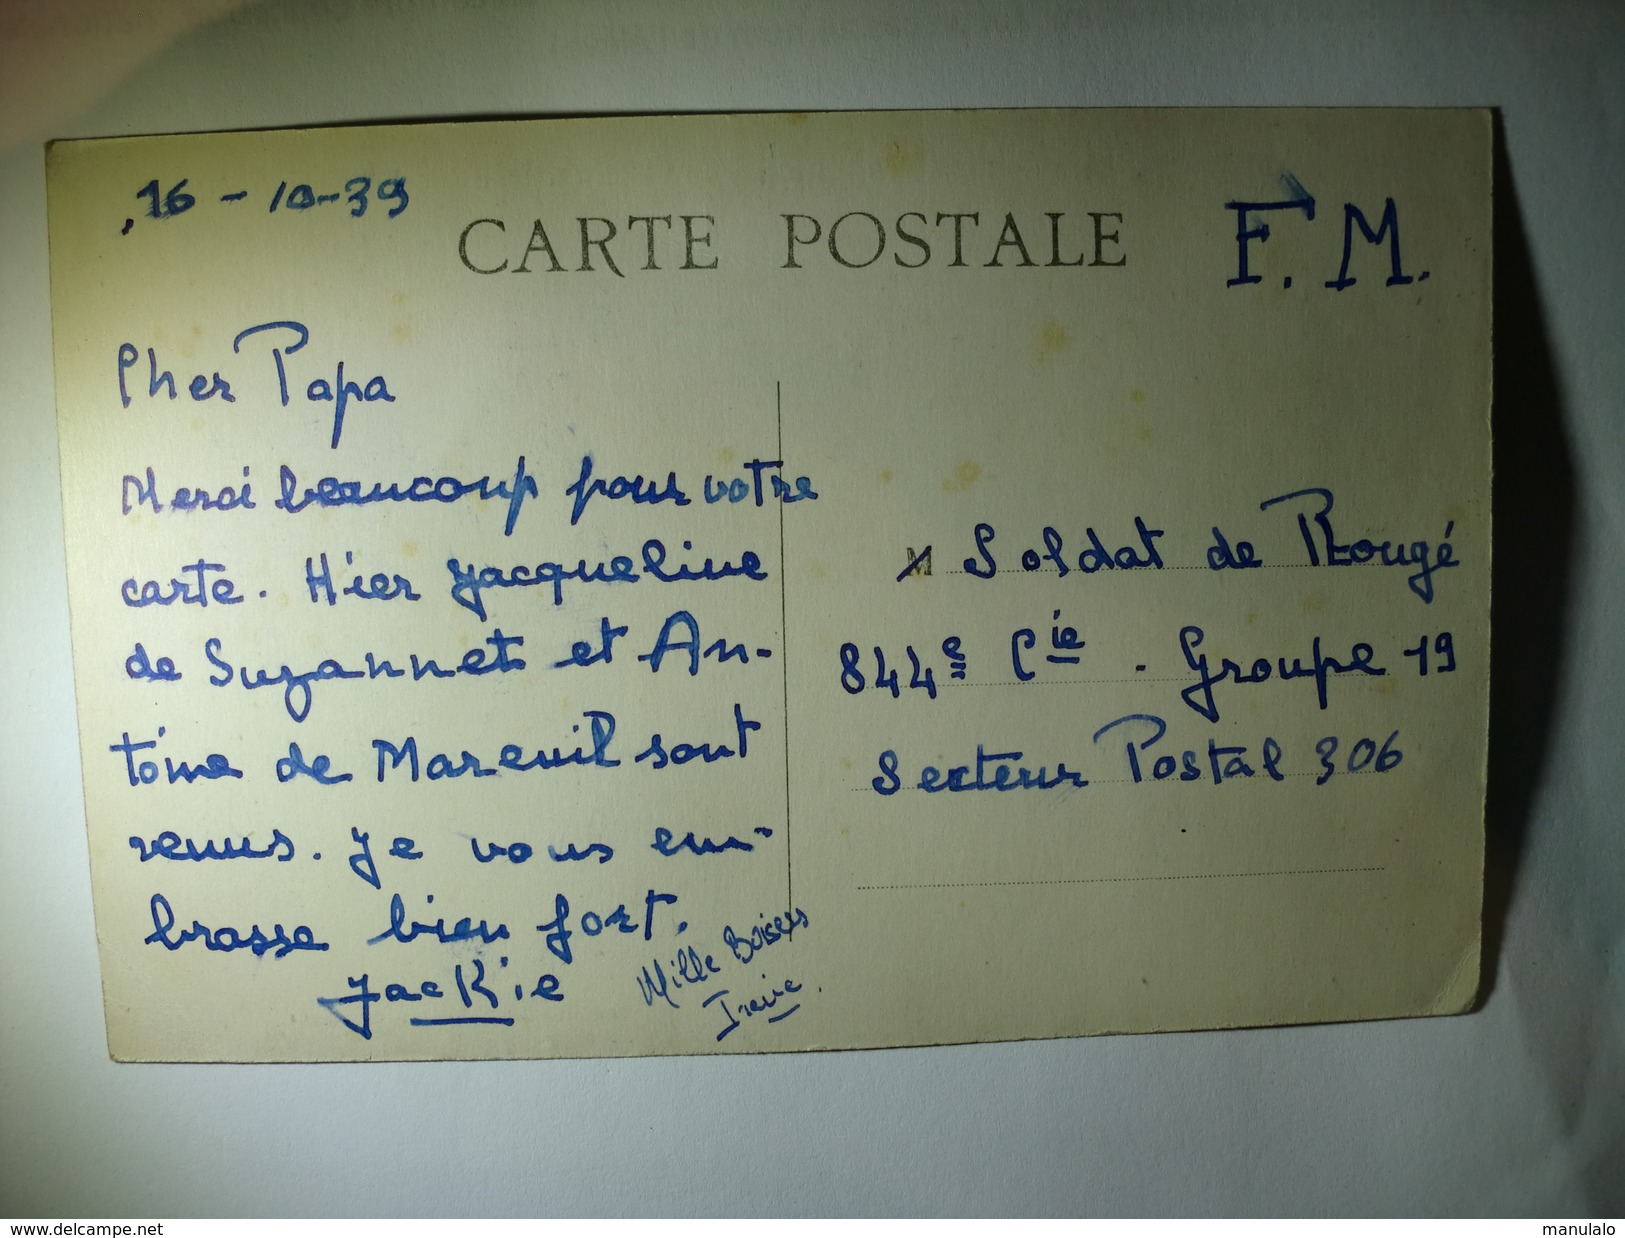 16-10-39
CARTE POSTALE
F.M.
Cher Papa
Merci beaucoup pour votre
carte. Hier Jacqueline
de Suzannet et An-
toine de Mareuil sont
venus. Je vous em-
brasse bien fort.
Jackie
Mille Baisers
Irène.
M Soldat de Rougé
844e Cie - Groupe 19
Secteur Postal 306
www.delcampe.net
manulalo